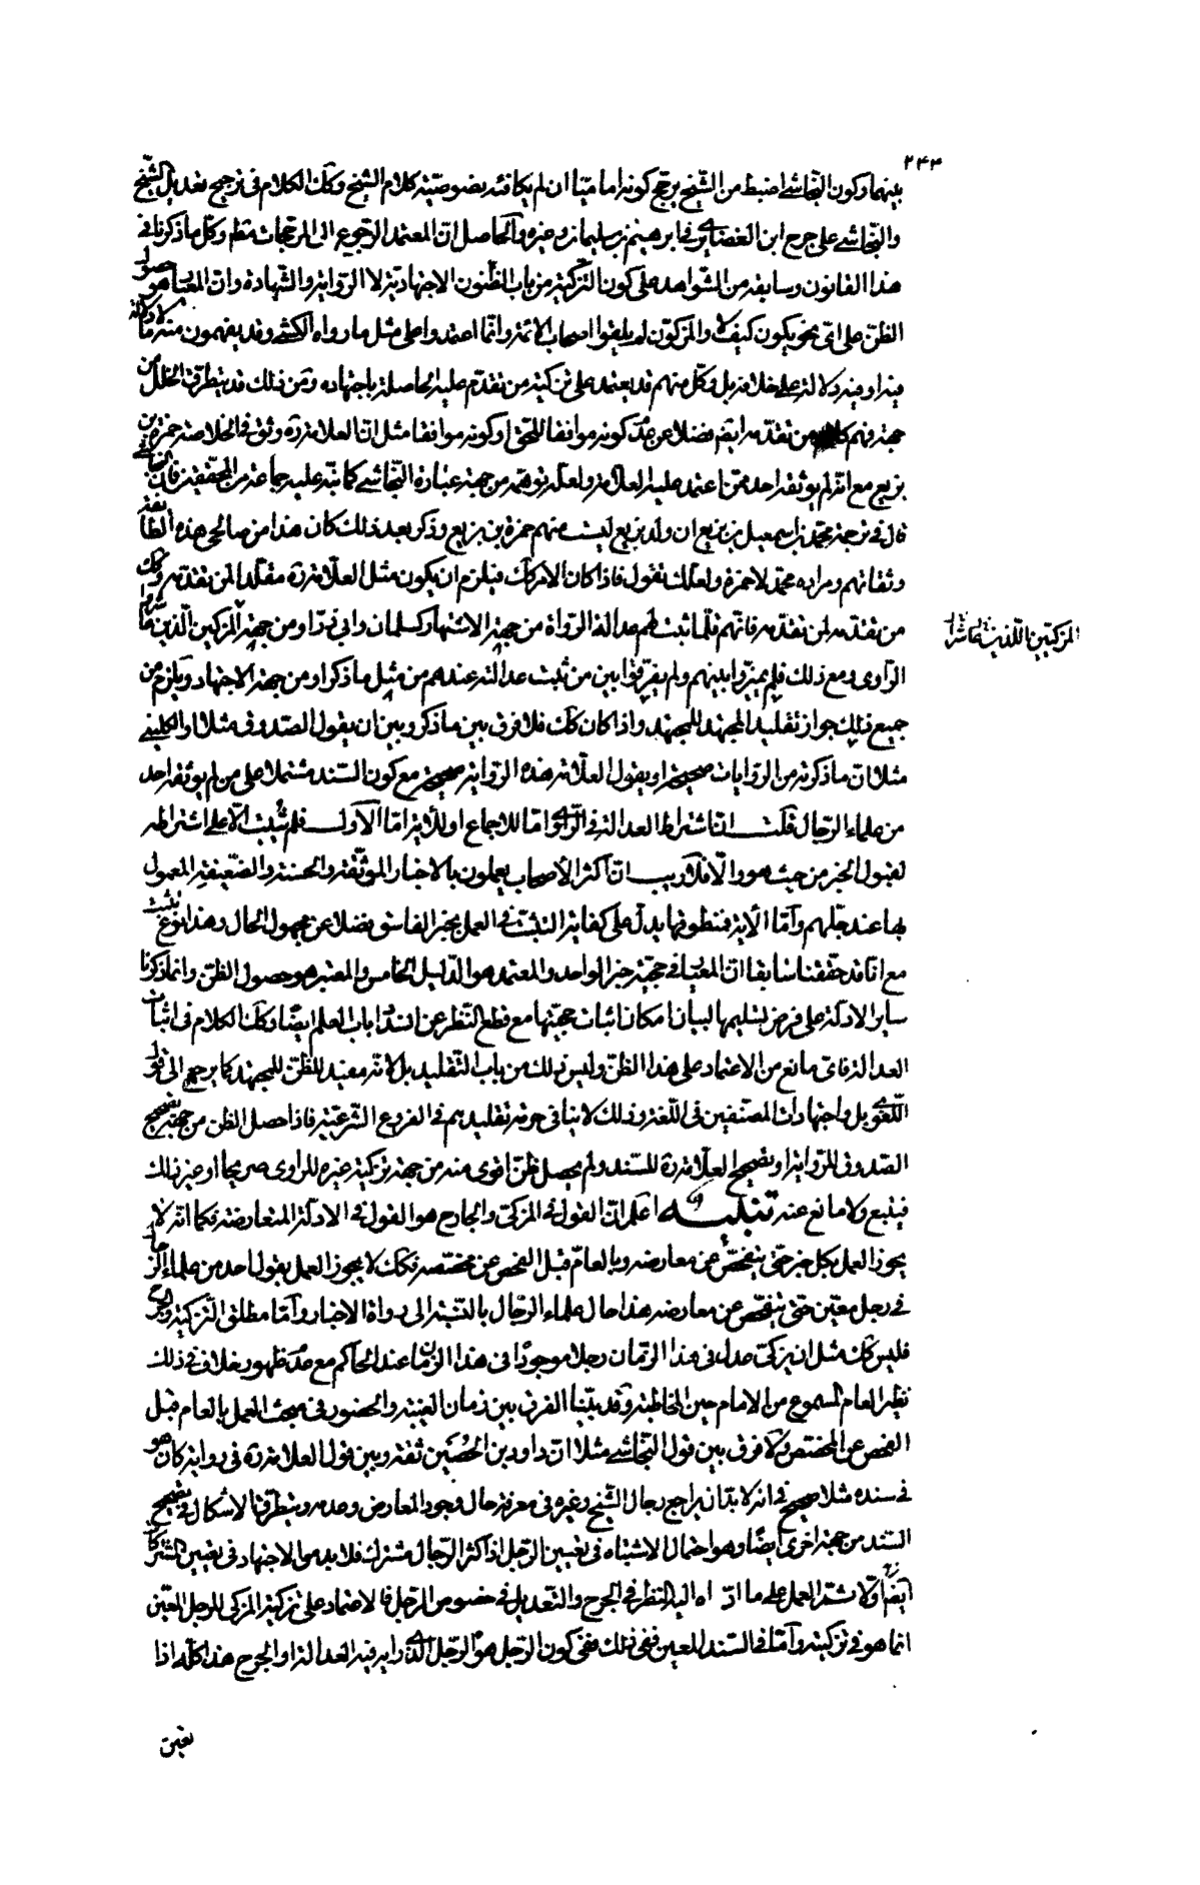 ٢٤٣
بينهما وكون النجاشي اضبط من الشيخ يرجح كونه اماميا ان لم يكافئه بضوصيته كلام الشيخ وكك الكلام في ترجيح تعديل الشيخ
والنجاشي على جرح ابن الغضايري في ابرهيم بن سليمان وغيره والحاصل ان المعتمد الرجوع الى المرجحات مطم وكل ما ذكرنا في
هذا القانون وسابقه من الشواهد على كون التزكية من باب الظنون الاجتهادية لا الرواية والشهادة وان المعيار هو حصول
الظن على اي نحو يكون كيف لا والمزكون لم يلقوا اصحاب الائمة وانما اعتمدوا على مثل ما رواه الكشي وقد يفهمون منه ما لا دلالة
فيه او فيه دلالة على خلافه بل وكل منهم قد يعتمد على تزكية من تقدم عليه الحاصلة باجتهاده ومن ذلك قد يتطرق الخلل من
جهة فهم كلام من تقدمه ايضم فضلا عن عدم كونه موافقا للحق او كونه موافقا مثل ان العلامة ره وثق في الخلاصة حمزة بن
بزيع مع انه لم يوثقه احد ممن اعتمد عليه العلامة ولعله توهمه من جهة عبارة النجاشي كما نبه عليه جماعة من المحققين فان النجاشي
قال في ترجمة محمد بن اسمعيل بن بزيع ان ولد بزيع بيت منهم حمزة بن بزيع وذكر بعد ذلك كان هذا من صالحي هذه الطائفة
وثقاتهم ومراده محمد لا حمزة ولعلك تقول فاذا كان الامر كك فيلزم ان يكون مثل العلامة ره مقلدا لمن تقدمه وكك
من تقدمه لمن تقدمه فانهم قلما ثبت لهم عدالة الرواة من جهة الاشتهار كسلمان وابي ذر او من جهة المزكين الذين عاشروا
المزكيين اللذين عاشرا
الراوي ومع ذلك فلم يميزوا بينهم ولم يفرقوا بين من ثبت عدالته عندهم من مثل ما ذكر او من جهة الاجتهاد ويلزم من
جميع ذلك جواز تقليد المجتهد للمجتهد واذا كان كك فلا فرق بين ما ذكر وبين ان يقول الصدوق مثلا او الكليني
مثلا ان ما ذكرته من الروايات صحيحة او يقول العلامة هذه الرواية صحيحة مع كون السند مشتملا على من لم يوثقه احد
من علماء الرجال قلت ان اشتراط العدالة في الراوي اما للاجماع او للاية اما الاول فلم يثبت الا على اشتراطه
لقبول الخبر من حيث هو والا فلا ريب ان اكثر الاصحاب يعملون بالاخبار الموثقة والحسنة والضعيفة المعمول
بها عند جلهم واما الاية فمنطوقها يدل على كفاية التثبت في العمل بخبر الفاسق فضلا عن مجهول الحال وهذا نوع تثبت
مع انا قد حققنا سابقا ان المعيار في حجية خبر الواحد والمعتمد هو الدليل الخامس والمعتبر هو حصول الظن وانما ذكرنا
ساير الادلة على فرض تسليمها لبيان امكان اثبات حجيتها مع قطع النظر عن انسداد باب العلم ايضا وكك الكلام في اثبات
العدالة فاي مانع من الاعتماد على هذا الظن وليس ذلك من باب التقليد بل لانه مفيد للظن للمجتهد كما يرجع الى قول
اللغوي بل واجتهادات المصنفين في اللغة وذلك لا ينافي حرمة تقليدهم في الفروع الشرعية فاذا حصل الظن من جهة تصحيح
الصدوق للرواية او تصحيح العلامة ره للسند ولم يحصل ظن اقوى منه من جهة تزكية غيره للراوي صريحا او غير ذلك
فيتبع ولا مانع عنه تنبيه اعلم ان القول في المزكي والجارح هو القول في الادلة المتعارضة فكما انه لا
يجوز العمل بكل خبر حتى يتفحص عن معارضه وبالعام قبل الفحص عن مخصصه فكك لا يجوز العمل بقول احد من علماء الرجال
في رجل معين حتى يتفحص عن معارضه هذا حال علماء الرجال بالنسبة الى رواة الاخبار واما مطلق التزكية والجرح
فليس كك مثل ان يزكي عدل في هذا الزمان رجلا موجودا في هذا الزمان عند الحاكم مع عدم ظهور خلاف في ذلك
نظير العام المسموع من الامام حين المخاطبة وقد بينا الفرق بين زمان الغيبة والحضور في مبحث العمل بالعام قبل
الفحص عن المخصص ولا فرق بين قول النجاشي مثلا ان داود بن الحصين ثقة وبين قول العلامة ره في رواية كان هو
في سنده مثلا صحيح في انه لا بد ان يراجع رجال الشيخ وغيره في معرفة حال وجود المعارض وعدمه ويتطرق الاشكال في تصحيح
السند من جهة اخرى ايضا وهو احتمال الاشتباه في تعيين الرجل اذ اكثر الرجال مشترك فلا بد من الاجتهاد في تعيين المشتركات
ايضا ولا يتم العمل على ما ادّاه اليه النظر في الجرح والتعديل في خصوص الرجل فالاعتماد على تزكية المزكي للرجل المعين
انما هو في تزكيته واما في السند المعين ففي ذلك ففي كون الرجل هو الرجل الذي رايه فيه العدالة او الجرح هذا كله اذا
تعين